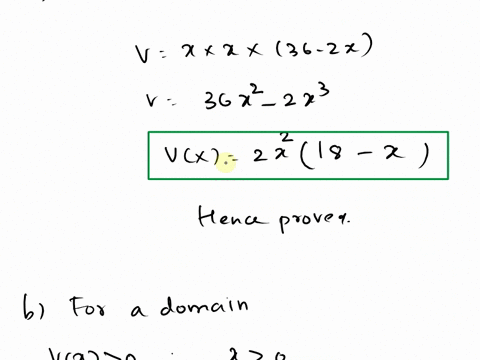 V = x × x × (36-2x)
v = 36x² - 2x³
V(x) = 2x² (18 - x)
Hence proved.
b) For a domain
V(x) > 0 x > 0